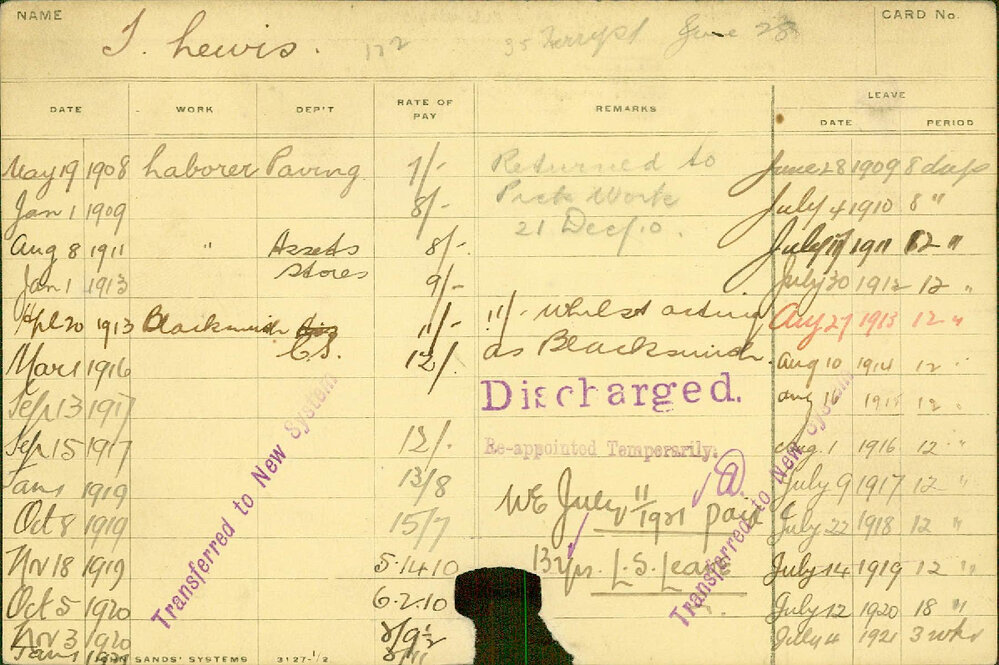 NAME
CARD No.
T. Lewis. 35 Ferry St June 23
DATE WORK DEP'T RATE OF PAY REMARKS LEAVE
DATE PERIOD
May 19 1908 Laborer Paving 7/- Returned to June 28 1909 8 days
Jan 1 1909 8/- Pick Work July 4 1910 8 "
21 Dec/10.
Aug 8 1911 " Assets 8/- July 1911 12 "
Stores
Jan 1 1913 9/- July 30 1912 12 "
Apl 20 1913 Blacksmith 11/- 11/- whilst acting Aug 27 1913 12 "
C.S. as Blacksmith.
Mar 1 1916 12/- Aug 10 1914 12 "
Discharged.
Sep 13 1917 Aug 16 1915 12 "
Sep 15 1917 12/- Re-appointed Temporarily. Aug. 1 1916 12 "
Jan 1 1919 13/8 July 9 1917 12 "
Oct 8 1919 15/7 WE July 11/1921 paid July 22 1918 12 "
Nov 18 1919 5.14.10 13 L.S. Leave July 14 1919 12 "
Oct 5 1920 6.2.10 July 12 1920 18 "
Nov 3 1920 July 4 1921 3 wks
Jan 1
Transferred to New System
Transferred to New System
SANDS' SYSTEMS 3127-1/2